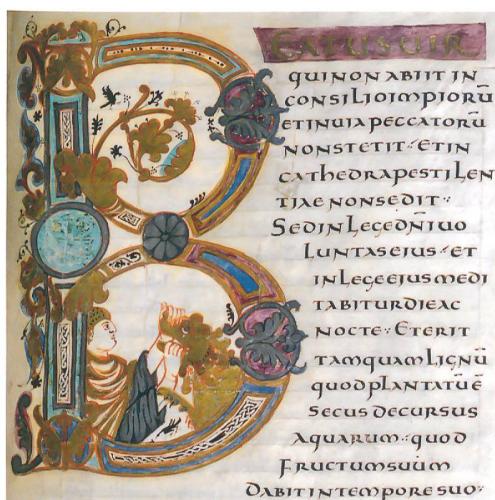 BEATUS UIR
QUI NON ABIIT IN
CONSILIO IMPIORŪ
ET IN UIA PECCATORŪ
NON STETIT ET IN
CATHEDRA PESTILEN
TIAE NON SEDIT
SED IN LEGE DN̄I UO
LUNTAS EIUS ET
IN LEGE EJUS MEDI
TABITUR DIE AC
NOCTE ET ERIT
TAMQUAM LIGNŪ
QUOD PLANTATŪ Ē
SECUS DECURSUS
AQUARUM QUOD
FRUCTUM SUUM
DABIT IN TEMPORE SUO